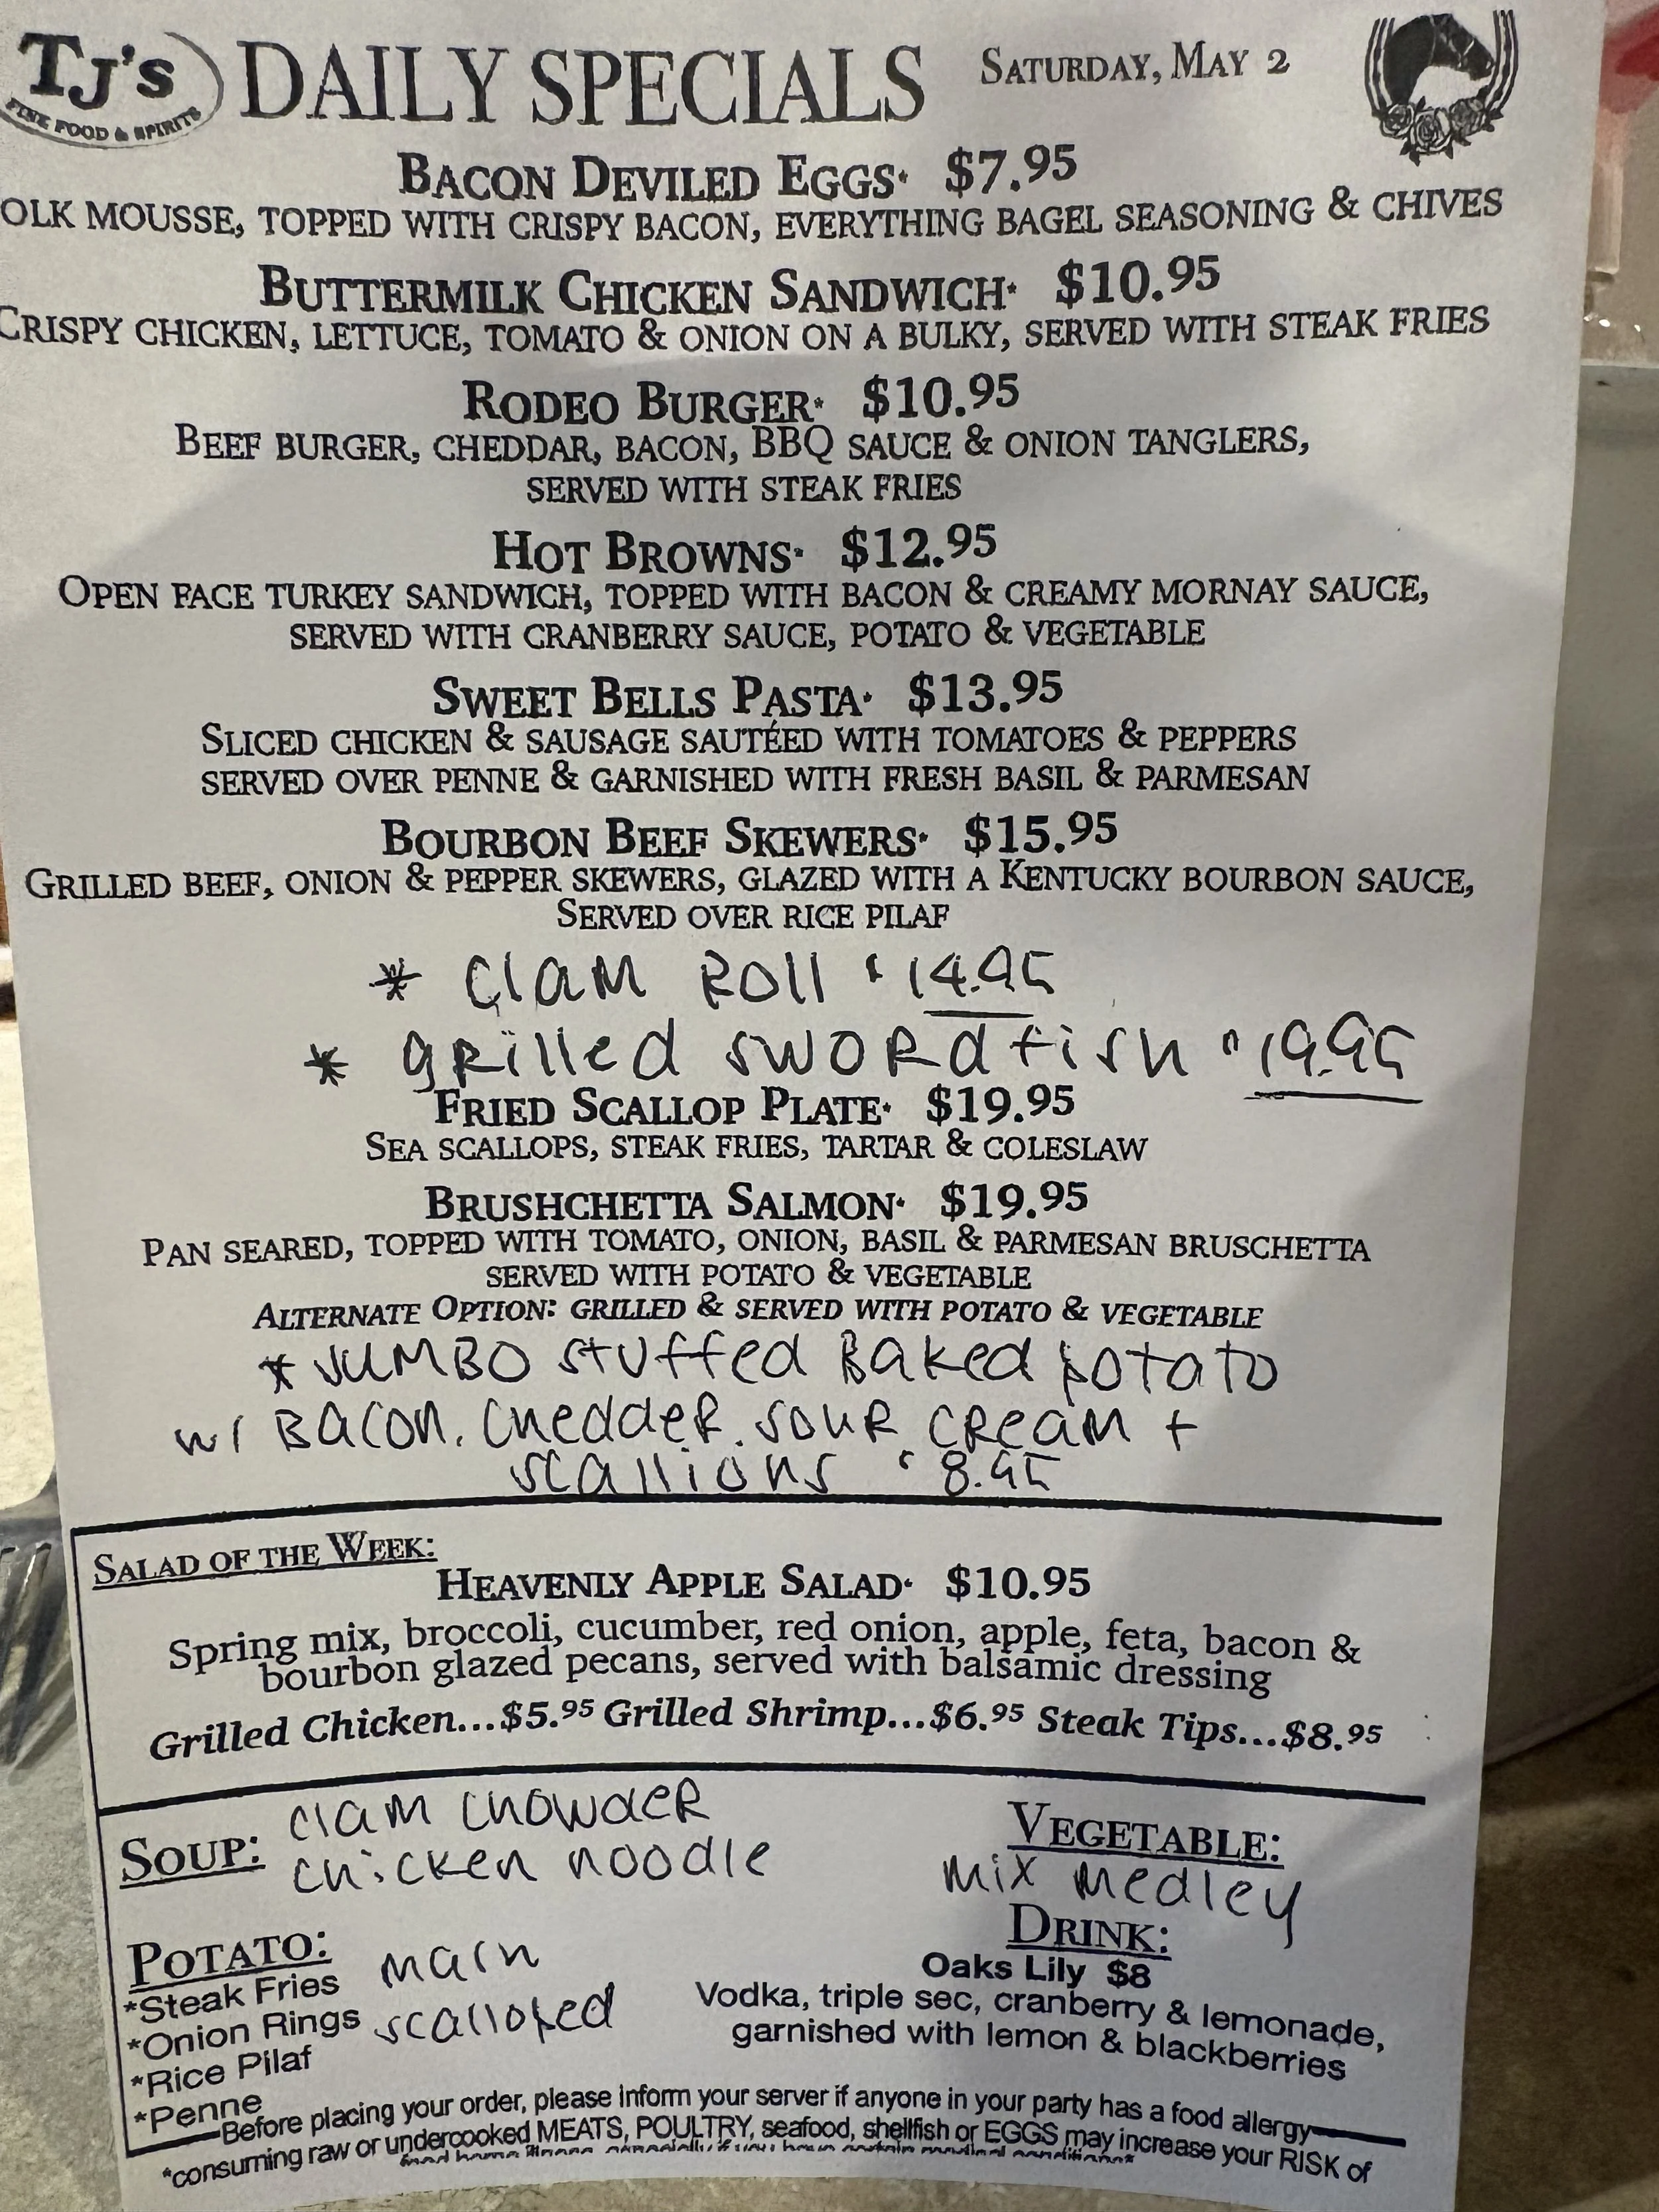 TJ's
FINE FOOD & SPIRITS
DAILY SPECIALS
SATURDAY, MAY 2
BACON DEVILED EGGS· $7.95
OLK MOUSSE, TOPPED WITH CRISPY BACON, EVERYTHING BAGEL SEASONING & CHIVES
BUTTERMILK CHICKEN SANDWICH· $10.95
CRISPY CHICKEN, LETTUCE, TOMATO & ONION ON A BULKY, SERVED WITH STEAK FRIES
RODEO BURGER· $10.95
BEEF BURGER, CHEDDAR, BACON, BBQ SAUCE & ONION TANGLERS,
SERVED WITH STEAK FRIES
HOT BROWNS· $12.95
OPEN FACE TURKEY SANDWICH, TOPPED WITH BACON & CREAMY MORNAY SAUCE,
SERVED WITH CRANBERRY SAUCE, POTATO & VEGETABLE
SWEET BELLS PASTA· $13.95
SLICED CHICKEN & SAUSAGE SAUTÉED WITH TOMATOES & PEPPERS
SERVED OVER PENNE & GARNISHED WITH FRESH BASIL & PARMESAN
BOURBON BEEF SKEWERS· $15.95
GRILLED BEEF, ONION & PEPPER SKEWERS, GLAZED WITH A KENTUCKY BOURBON SAUCE,
SERVED OVER RICE PILAF
* Clam Roll $14.95
* grilled swordfish $19.95
FRIED SCALLOP PLATE· $19.95
SEA SCALLOPS, STEAK FRIES, TARTAR & COLESLAW
BRUSHCHETTA SALMON· $19.95
PAN SEARED, TOPPED WITH TOMATO, ONION, BASIL & PARMESAN BRUSCHETTA
SERVED WITH POTATO & VEGETABLE
ALTERNATE OPTION: GRILLED & SERVED WITH POTATO & VEGETABLE
* JUMBO stuffed Baked potato
w/ Bacon, Cheddar, sour cream +
scallions $8.95
SALAD OF THE WEEK:
HEAVENLY APPLE SALAD· $10.95
Spring mix, broccoli, cucumber, red onion, apple, feta, bacon &
bourbon glazed pecans, served with balsamic dressing
Grilled Chicken...$5.95 Grilled Shrimp...$6.95 Steak Tips...$8.95
SOUP: clam chowder
chicken noodle
VEGETABLE:
mix medley
POTATO:
*Steak Fries
*Onion Rings
*Rice Pilaf
*Penne
main
scalloped
DRINK:
Oaks Lily $8
Vodka, triple sec, cranberry & lemonade,
garnished with lemon & blackberries
Before placing your order, please inform your server if anyone in your party has a food allergy
*consuming raw or undercooked MEATS, POULTRY, seafood, shellfish or EGGS may increase your RISK of
food borne illness, especially if you have certain medical conditions*